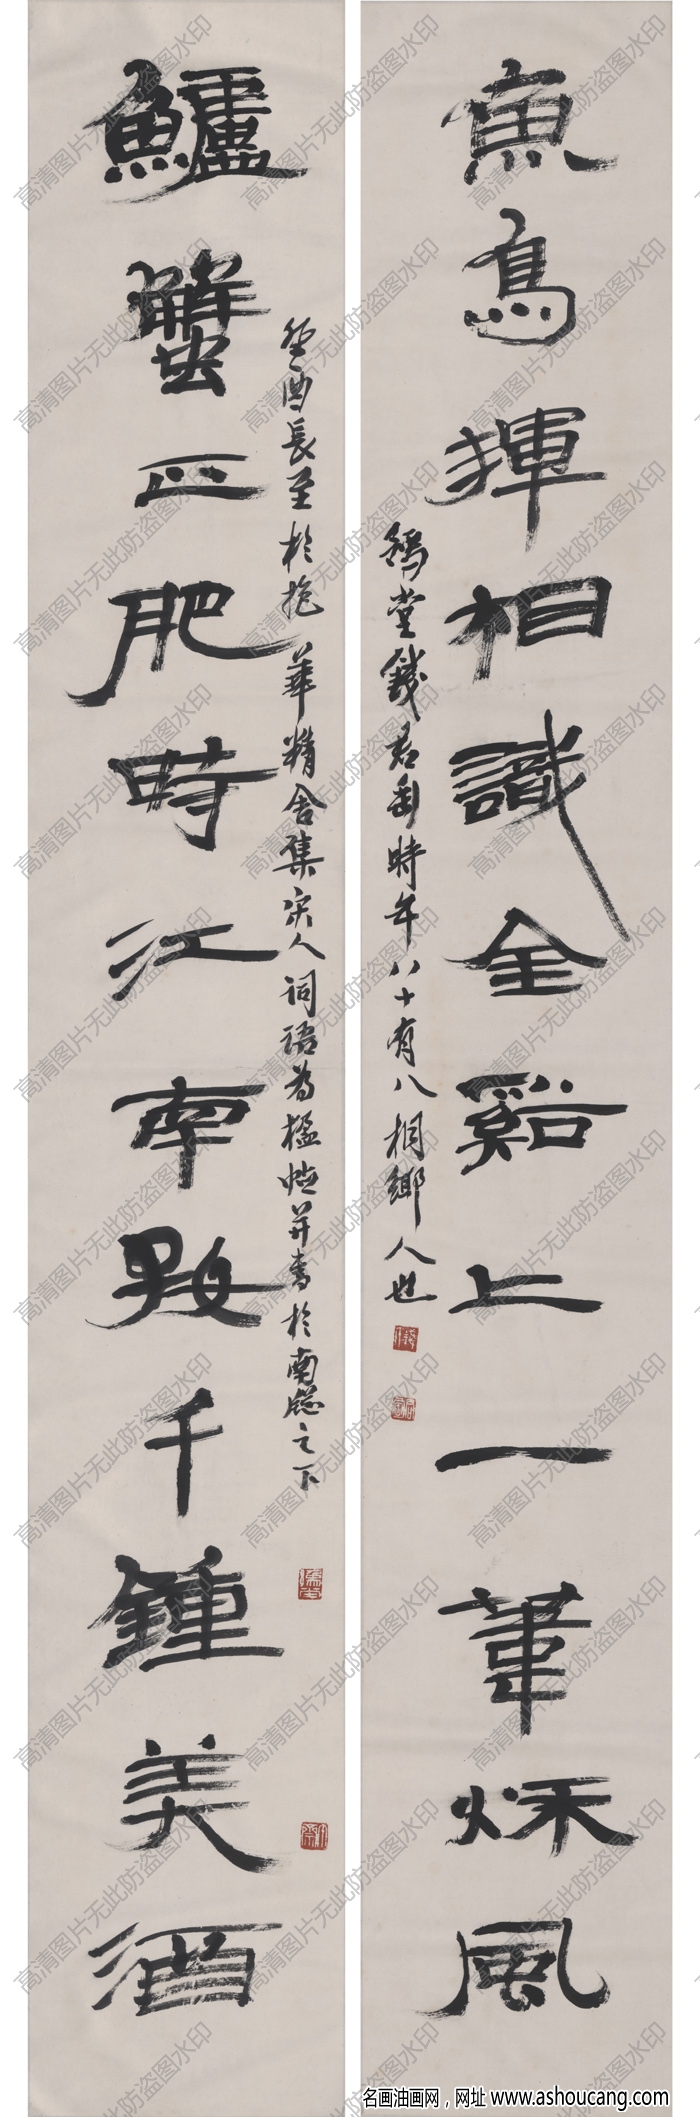 魚鳥渾相識全谿上一葦秌風
豫堂錢君匋時年八十有八桐鄉人也
癸酉長至於抱華精舍集宋人詞語為楹帖并書於南窗之下
鱸蟹正肥時江南數千鍾美酒
高清图片无此防盗图水印
名画油画网，网址 www.ashoucang.com